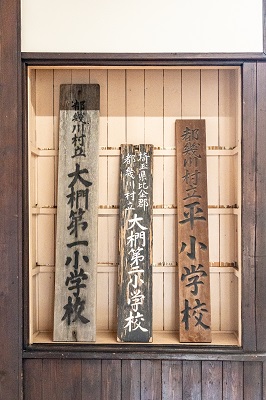 都幾川村立平小学校
埼玉県比企郡
都幾川村立
大椚第二小学校
都幾川村立大椚第一小学校